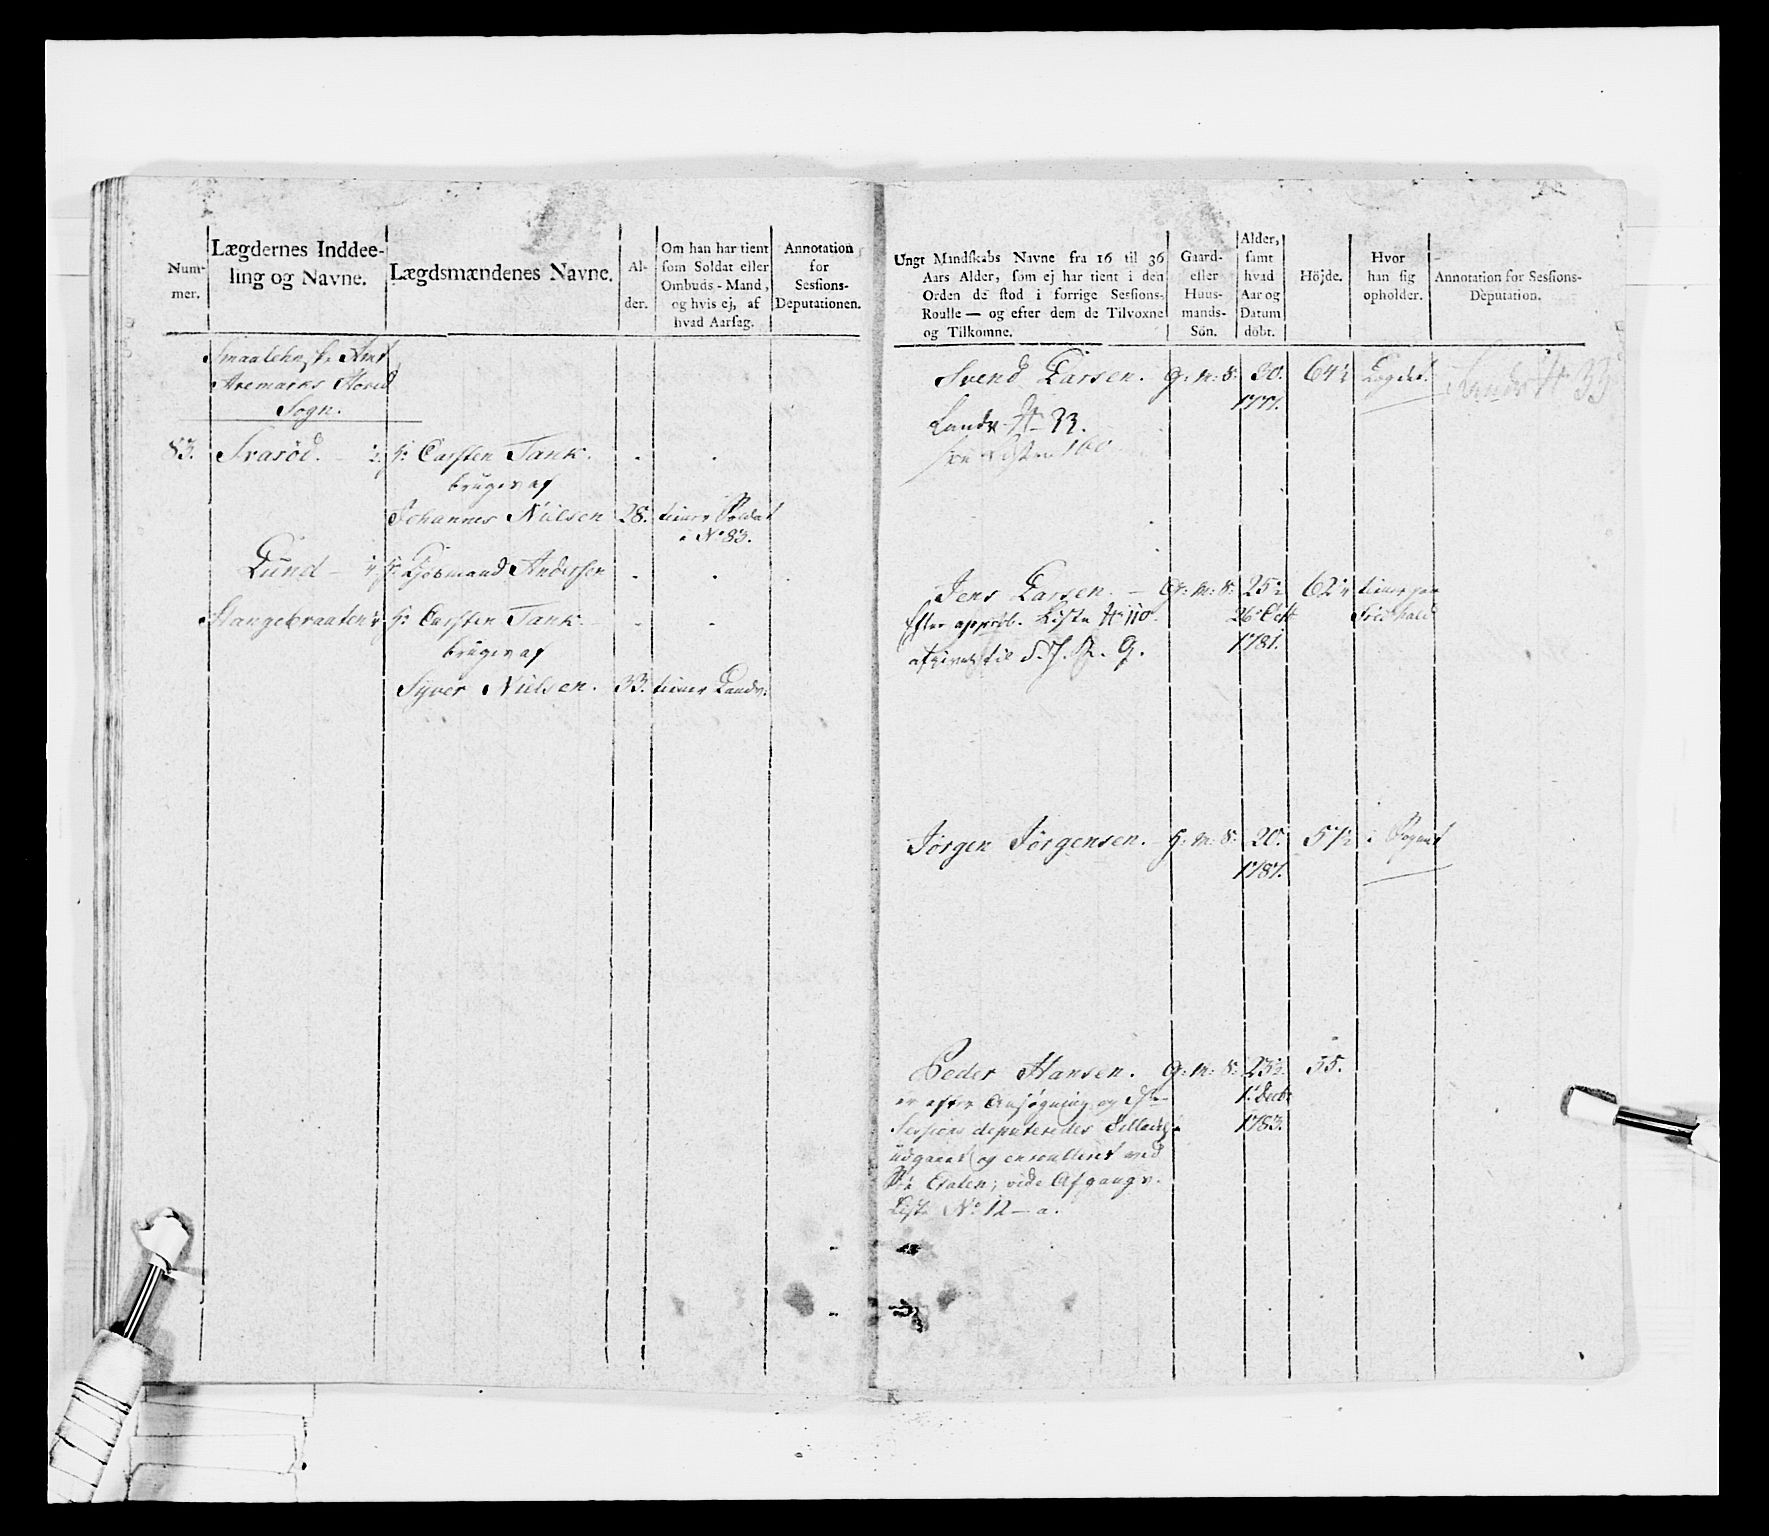 Num-
mer.
Lægdernes Inddee-
ling og Navne.
Lægdsmændenes Navne.
Al-
der.
Om han har tient
som Soldat eller
Ombuds-Mand,
og hvis ej, af
hvad Aarsag.
Annotation
for
Sessions-
Deputationen.
Smaalehnske Amt
Aremarks Hoved
Sogn.
83. Svarød. H: Carsten Tank.
bruges af
Johannes Nielsen 28. tiener Soldat
i No 83.
Lund Andersen
Stangebraaten H: Carsten Tank
bruges af
Syver Nielsen. 33. tiener Landv:
Ungt Mandskabs Navne fra 16 til 36
Aars Alder, som ej har tient i den
Orden de stod i forrige Sessions-
Roulle — og efter dem de Tilvoxne
og Tilkomne.
Gaard-
eller
Huus-
mands-
Sön.
Alder,
samt
hvad
Aar og
Datum
döbt.
Höjde.
Hvor
han sig
opholder.
Annotation for Sessions-
Deputation.
Svend Larsen. G: M: S: 30. 64½ Logdet.
1777.
Landv No 33.
Jens Larsen. G: M: S: 25½ 62¼ tiener paa
Efter approb. Liste No 110. 26 Oct Fridrhald
afgivet til S. J. R. G. 1781.
Jörgen Jörgensen. H: M: S: 20. 57½ i Sognet
1787.
Peder Hansen. G: M: S: 23½ 55.
er efter Ansøgning og 1. Decbr
Sessions deputeredes Tilladelse 1783.
udgaaet og enroulleret ved
Söe Etaten; vide Afgangs-
Liste No 12 — a.